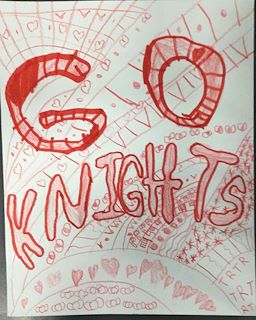 GO
KNIGHTS